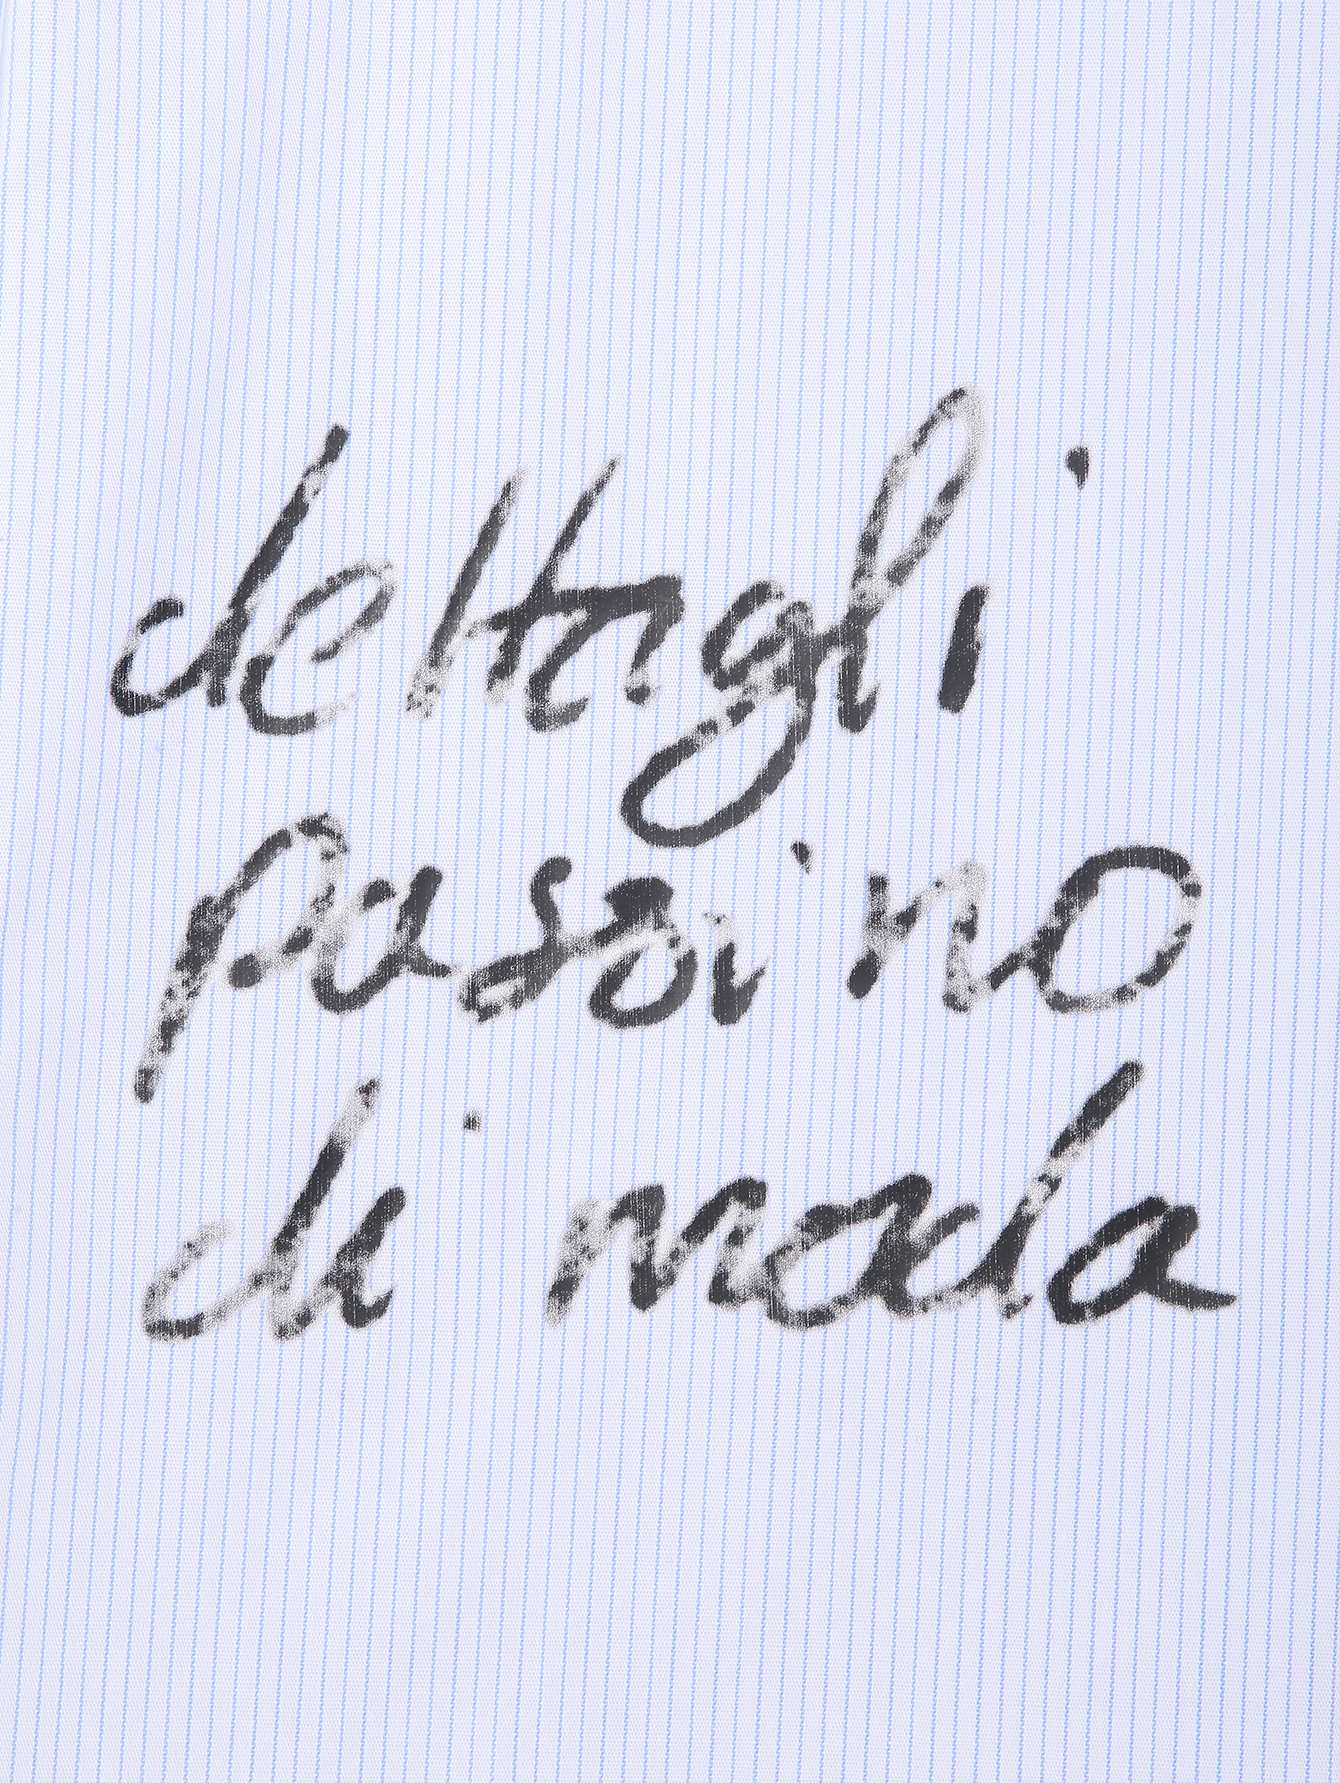 dettagli
passino
di moda